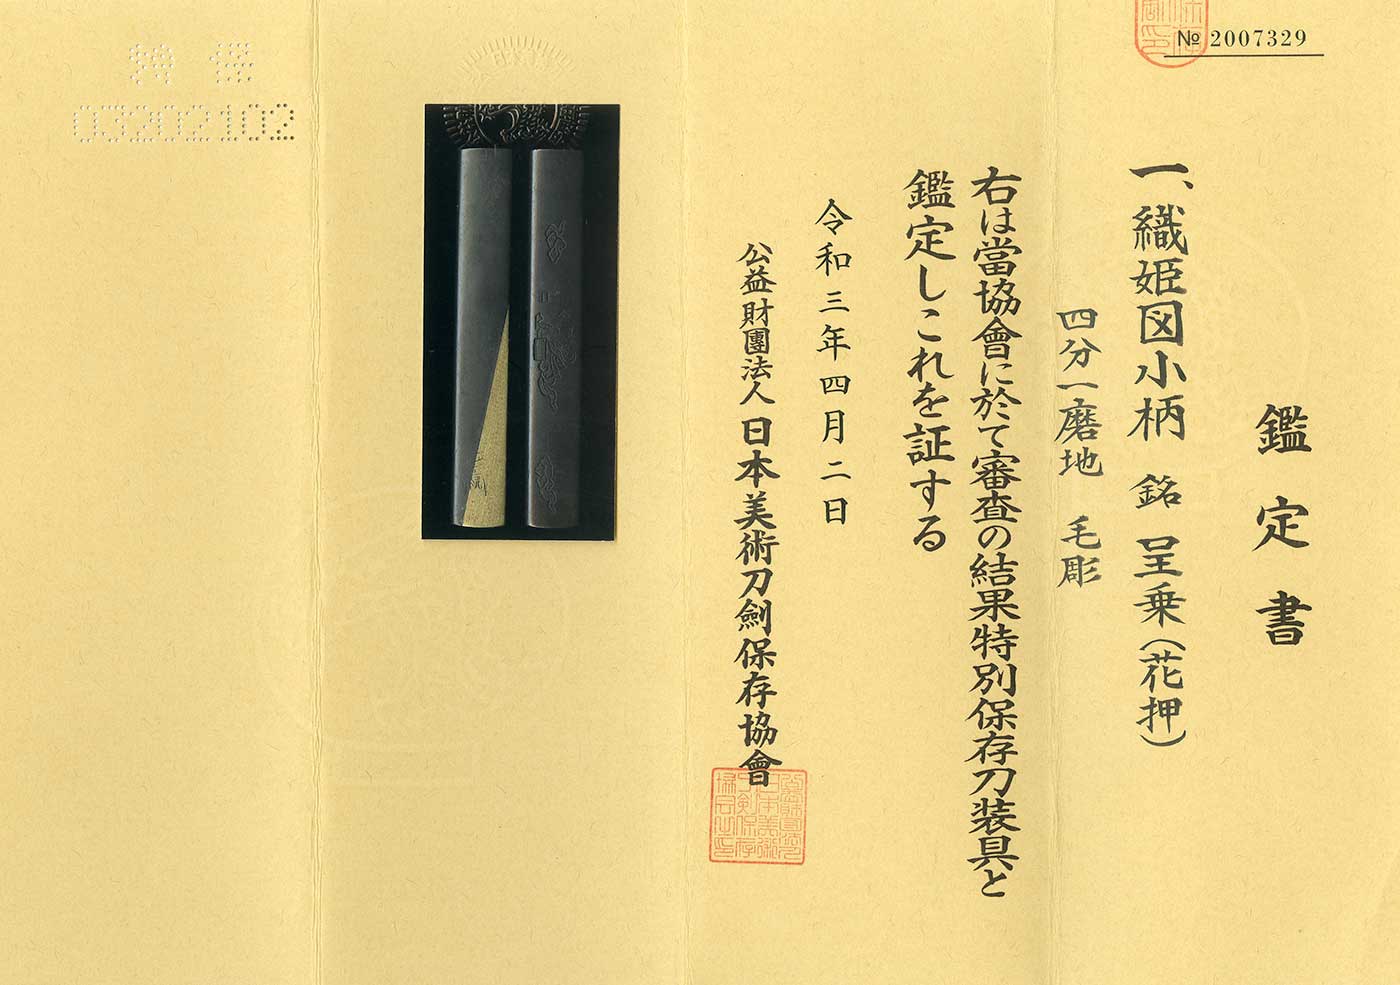 № 2007329
鑑定書
一、織姫図小柄 銘 呈乗(花押)
四分一磨地 毛彫
右は當協會に於て審査の結果特別保存刀装具と
鑑定しこれを証する
令和三年四月二日
公益財團法人 日本美術刀劍保存協會
特保
03202102